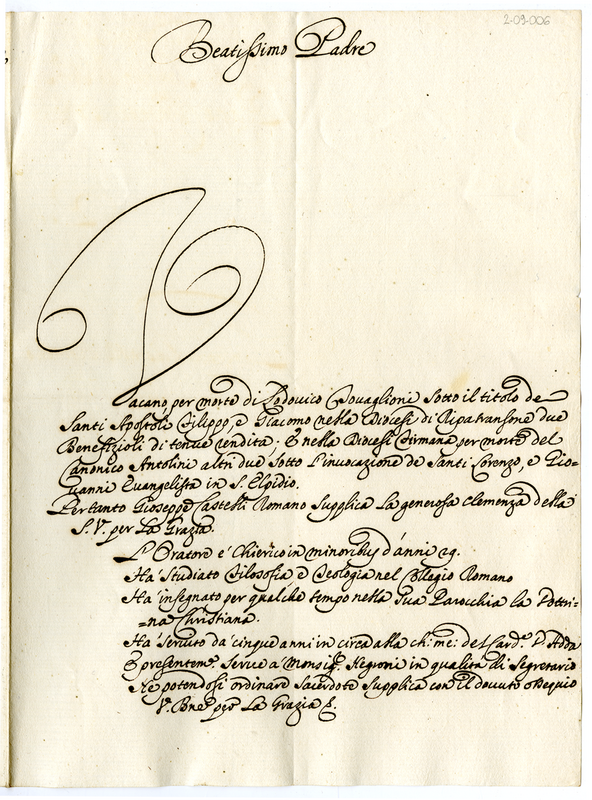 2-09-006
Beatissimo Padre
Vacano per morte di Lodovico Sovaglioni sotto il titolo de
Santi Apostoli Filippo, e Giacomo nella Diocesi di Ripatransone due
Benefizioli di tenue rendita. E nella Diocesi Firmana per morte del
Canonico Antolini altri due sotto l'invocazione de Santi Lorenzo, e Gio-
vanni Evangelista in S. Elpidio.
Pertanto Gioseppe Castelli Romano supplica la generosa clemenza della
S. V. per la Grazia.
L'Oratore e' Chierico in minoribus d'anni 29.
Ha' studiato Filosofia e Teologia nel Collegio Romano
Ha' insegnato per qualche tempo nella sua Parocchia la Dottri-
=na Christiana.
Ha' servito da' cinque anni in circa alla ch: me: del Card. D'Adda
E presentem. serve a' Monsig. Negroni in qualità di Segretario
Ne potendosi ordinare Sacerdote supplica con il dovuto ossequio
V. Bne per la Grazia